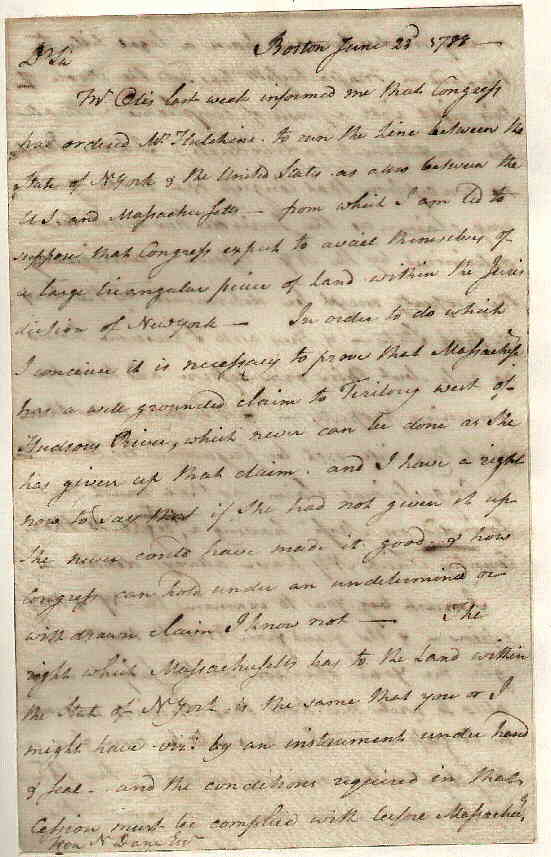 Boston June 23d 1788 —
Dr Sir
Mr Otis last week informed me that Congress
has ordered Mr Hutchins to run the Line between the
State of N York & the United States as also between the
U S. and Massachusetts — from which I am led to
suppose that Congress expect to avail themselves of
a large triangular piece of land within the Juris
diction of New York — In order to do which
I conceive it is necessary to prove that Massachusetts
has a well grounded claim to Teritory west of
Hudsons River, which never can be done as she
has given up that claim. and I have a right
now to say that if she had not given it up
she never could have made it good, & how
Congress can hold under an undetermined or
withdrawn claim I know not — The
right which Massachusetts has to the Land within
the State of N York, is the same that you or I
might have viz. by an instrument under hand
& seal - and the conditions required in that
Cession must be complied with before Massachusetts
Hon N Dane Esqr